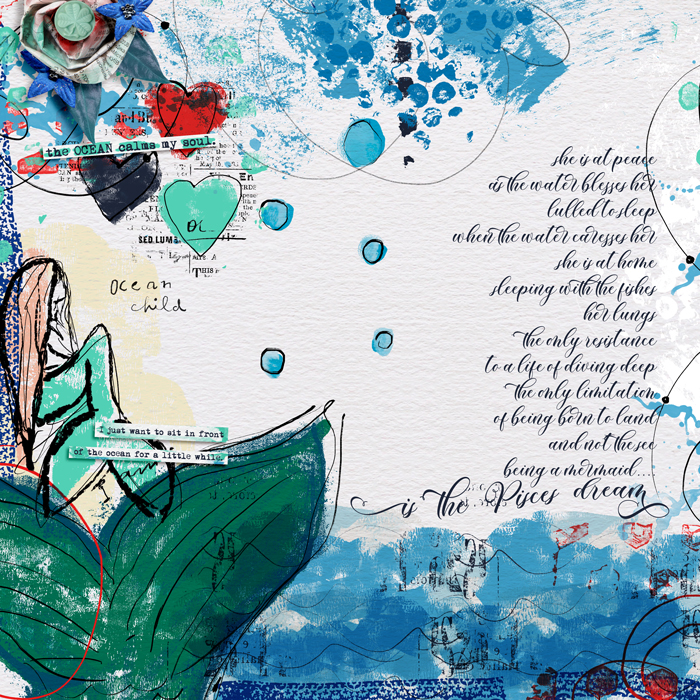 the OCEAN calms my soul.
En
SED LUM
THIS
ocean
child
I just want to sit in front
of the ocean for a little while.
she is at peace
as the water blesses her
lulled to sleep
when the water caresses her
she is at home
sleeping with the fishes
her lungs
the only resistance
to a life of diving deep
the only limitation
of being born to land
and not the see
being a mermaid...
is the Pisces dream